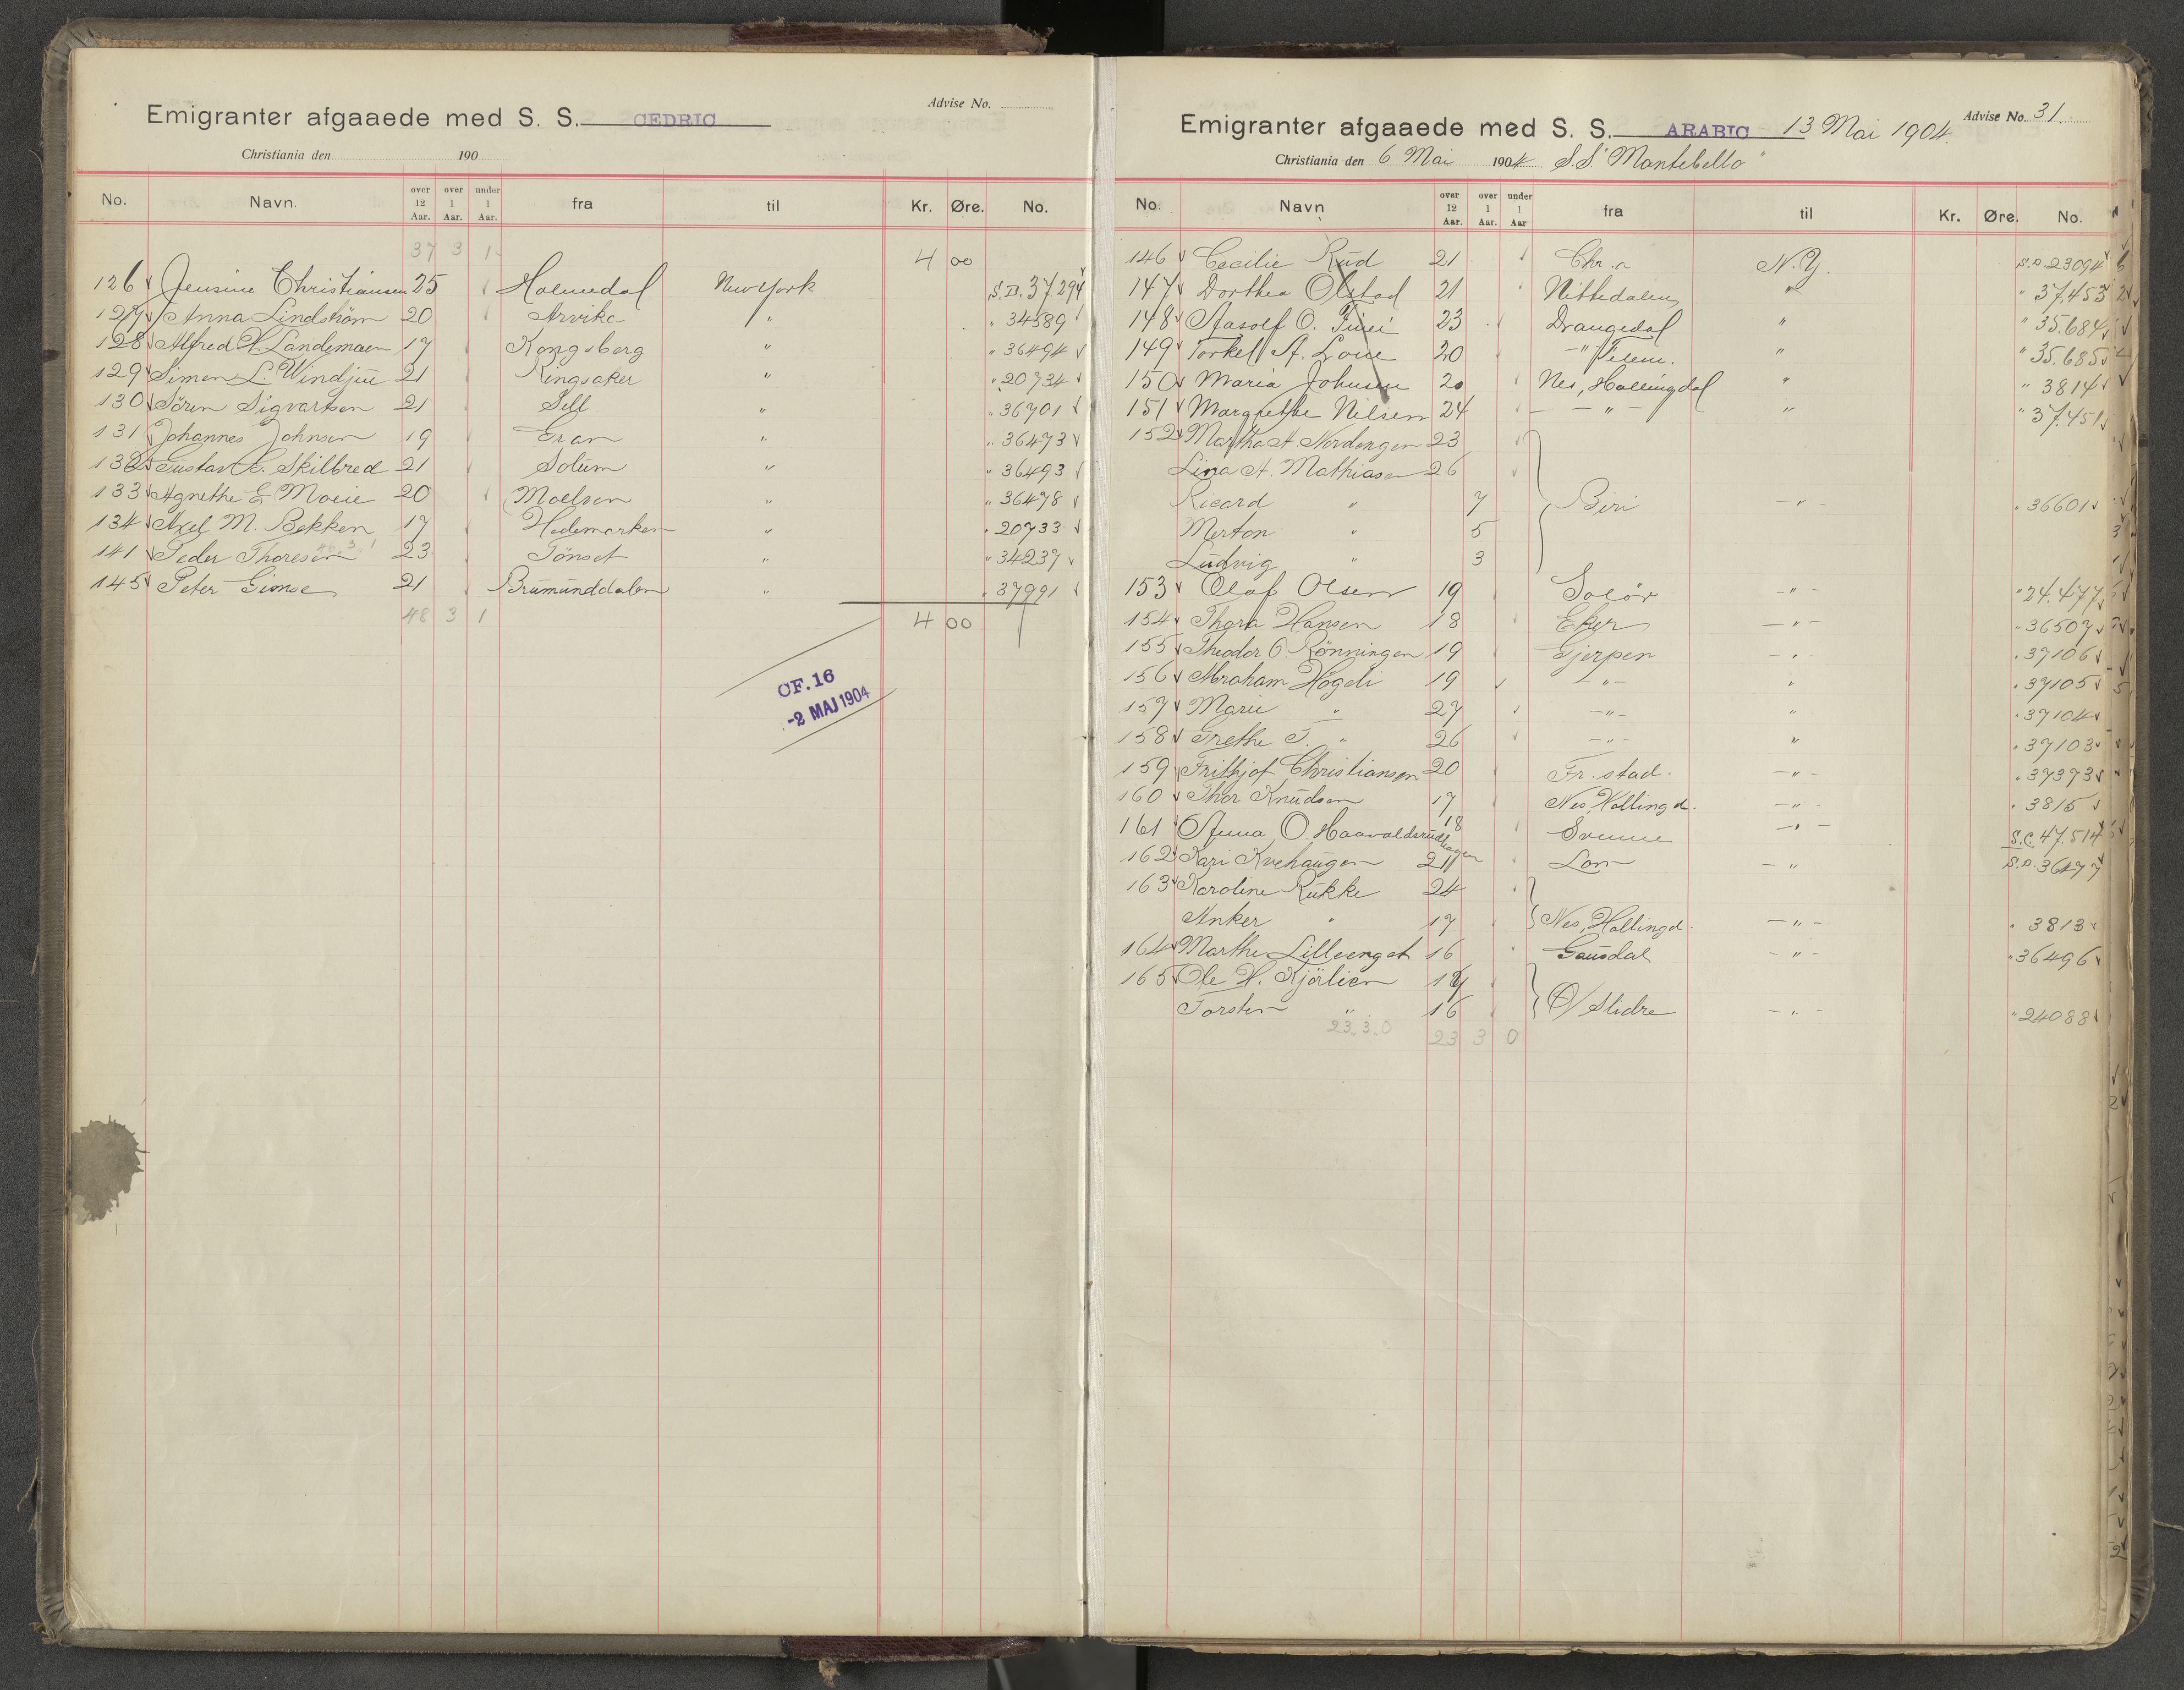 Advise No.
Emigranter afgaaede med S. S. CEDRIC
Christiania den 190
No. Navn. over 12 Aar. over 1 Aar. under 1 Aar. fra til Kr. Øre. No.
37 3 1 4 00
126 Jensine Christiansen 25 Holmedal New York S.D. 37.294
127 Anna Lindström 20 Arvika " " 34589
128 Alfred Landemaen 17 Kongsberg " " 36494
129 Simen L. Windjue 21 Ringsaker " " 20734
130 Sören Sigvartsen 21 Sell " " 36701
131 Johannes Johnsen 19 Gran " " 36473
132 Gustav Skilbred 21 Solum " " 36493
133 Agnethe E. Moeie 20 Moelven " " 36478
134 Axel M. Bekken 17 Hedemarken " " 20733
141 Peder Thoresen 23 Tönset " " 34237
145 Peter Gimse 21 Brumunddalen " " 37991
48 3 1 4 00
CF. 16
-2 MAJ 1904
Advise No. 31.
Emigranter afgaaede med S. S. ARABIC 13 Mai 1904.
Christiania den 6 Mai 1904 S.S. "Montebello"
No. Navn over 12 Aar. over 1 Aar. under 1 Aar fra til Kr. Øre. No.
146 Cecilie Rud 21 Chr.a N.Y. S.D. 23094
147 Dorthea Olstad 21 Nittedalen " " 37.453
148 Aasolf O. 23 Drangedal " " 35.684
149 Torkel A. Lone 20 -"- Telem. " " 35.685
150 Maria Johnsen 20 Nes, Hallingdal " " 3814
151 Margrethe Nilsen 24 - " - " " 37.451
152 Martha A Nordengen 23
Lina A. Mathiasen 26
Ricard " 7 Biri - " - " 36601
Merton " 5
Ludvig " 3
153 Olaf Olsen 19 Solör - " - " 24.477
154 Thora Hansen 18 Eker - " - " 36507
155 Theodor O. Rönningen 19 Gjerpen - " " 37106
156 Abraham Högeli 19 - " - " " 37105
157 Marie " 27 - " - " " 37104
158 Grethe T. " 26 - " - " " 37103
159 Frithjof Christiansen 20 Fr.stad. - " - " 37373
160 Thor Knudsen 17 Nes, Hallingd. - " - " 3815
161 Anna O. Haavaldsrudhagen 18 Svenne - " - S.C. 47.514
162 Kari Kvehaugen 21 Lom - " S.D. 36477
163 Karoline Rukke 24
Anker " 17 Nes, Hallingd. - " - " 3813
164 Marthe Lillevenget 16 Gausdal - " - " 36496
165 Ole H. Kjörlien 19
Torsten " 16 Ø/ Slidre - " - " 24088
23.3.0 23 3 0